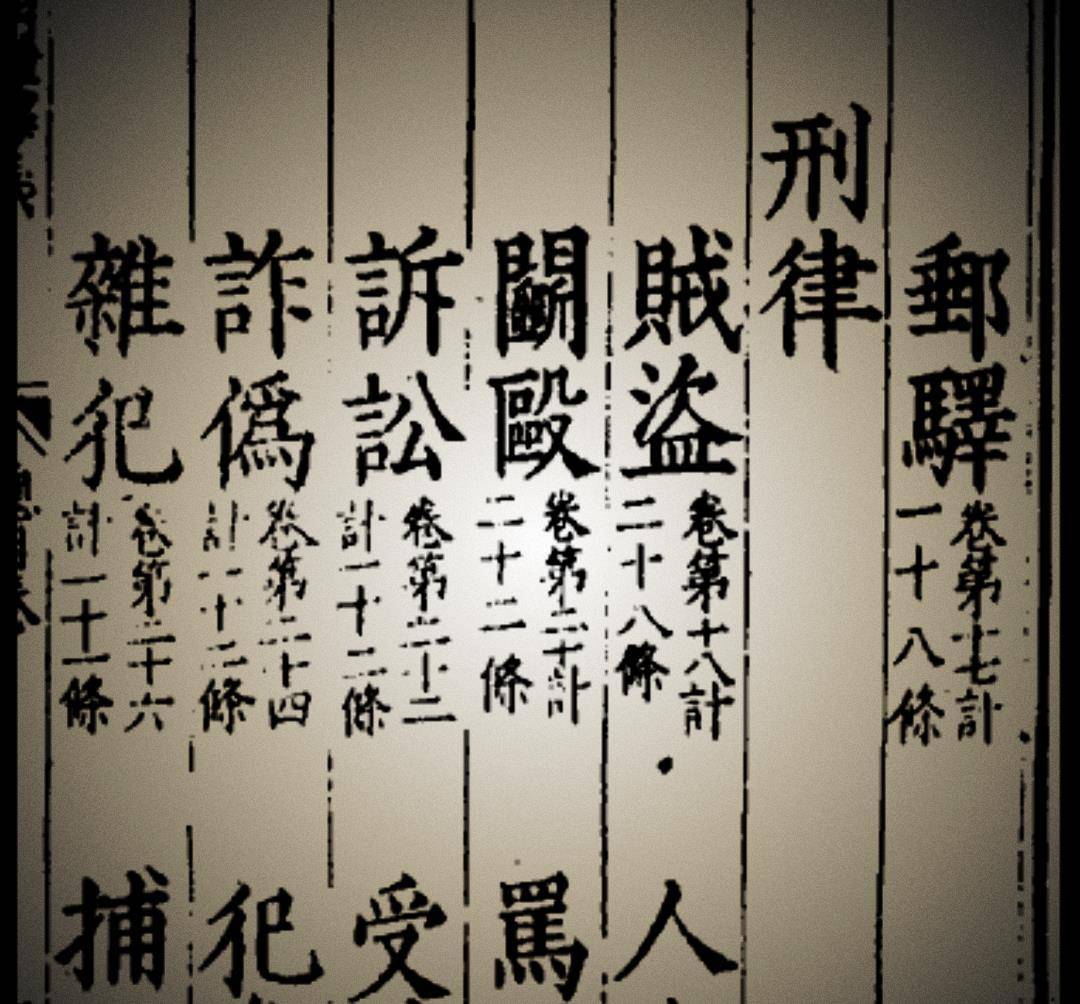 郵驛卷第十七計一十八條
刑律
賊盜卷第十八計二十八條 人
鬭毆卷第二十計二十二條 罵
訴訟卷第二十二計一十二條 受
詐偽卷第二十四計一十二條 犯
雜犯卷第二十六計一十一條 捕